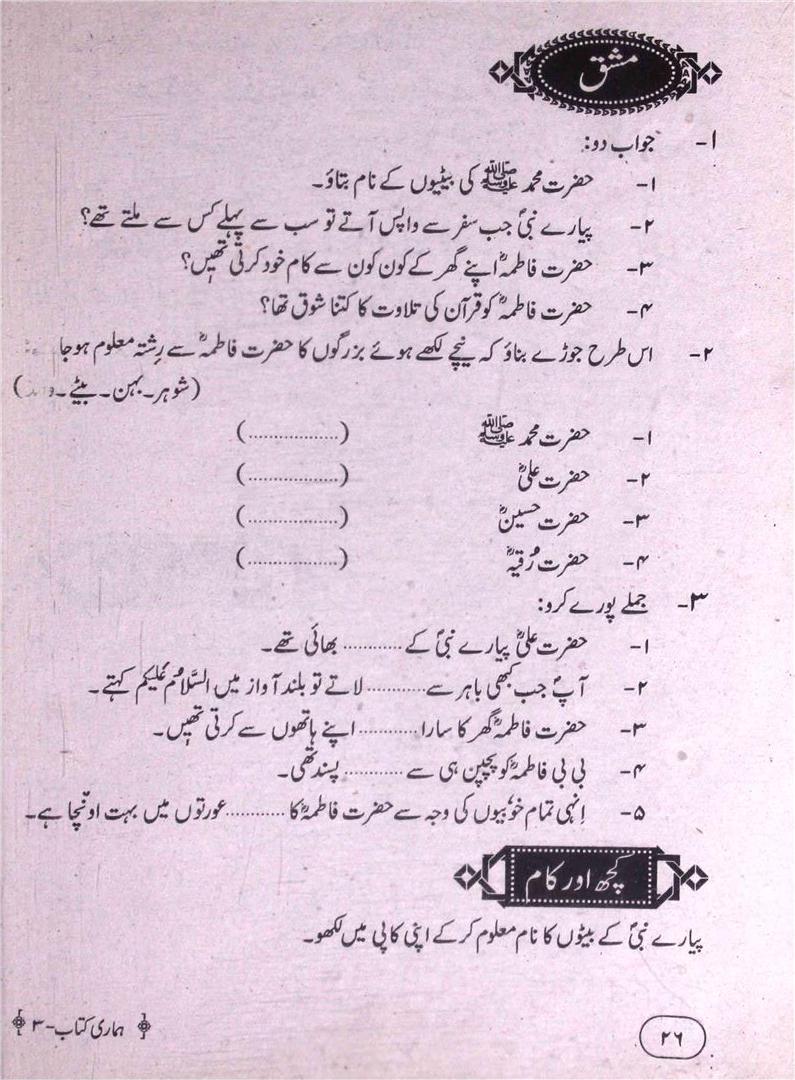 مشق
۱- جواب دو:
۱- حضرت محمد ﷺ کی بیٹیوں کے نام بتاؤ۔
۲- پیارے نبیؐ جب سفر سے واپس آتے تو سب سے پہلے کس سے ملتے تھے؟
۳- حضرت فاطمہؓ اپنے گھر کے کون کون سے کام خود کرتی تھیں؟
۴- حضرت فاطمہؓ کو قرآن کی تلاوت کا کتنا شوق تھا؟
۲- اس طرح جوڑے بناؤ کہ نیچے لکھے ہوئے بزرگوں کا حضرت فاطمہؓ سے رِشتہ معلوم ہوجا
(شوہر۔بہن۔بیٹے۔
۱- حضرت محمد ﷺ (................)
۲- حضرت علیؓ (................)
۳- حضرت حسینؓ (................)
۴- حضرت رُقیہؓ (................)
۳- جملے پورے کرو:
۱- حضرت علیؓ پیارے نبیؐ کے ............ بھائی تھے۔
۲- آپؐ جب کبھی باہر سے ............ لاتے تو بلند آواز میں السَّلامُ عَلیکم کہتے۔
۳- حضرت فاطمہؓ گھر کا سارا ............ اپنے ہاتھوں سے کرتی تھیں۔
۴- بی بی فاطمہؓ کو بچپن ہی سے ............ پسند تھی۔
۵- اِنہی تمام خوٗبیوں کی وجہ سے حضرت فاطمہؓ کا ............ عورتوں میں بہت اونچا ہے۔
کچھ اور کام
پیارے نبیؐ کے بیٹوں کا نام معلوم کرکے اپنی کاپی میں لکھو۔
۲۶
ہماری کتاب-۳